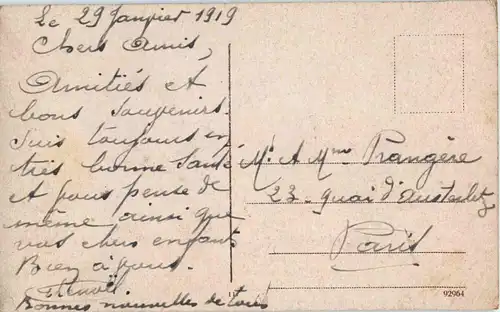 Le 29 Janvier 1919
Chers Amis,
Amitiés et
bons souvenirs.
Suis toujours en
très bonne santé
et vous pense de
même ainsi que
vos chers enfants
Bien à vous.
Bonnes nouvelles de tous
Mr et Mme Prangère
23 Quai d'Austerlitz
Paris
92964